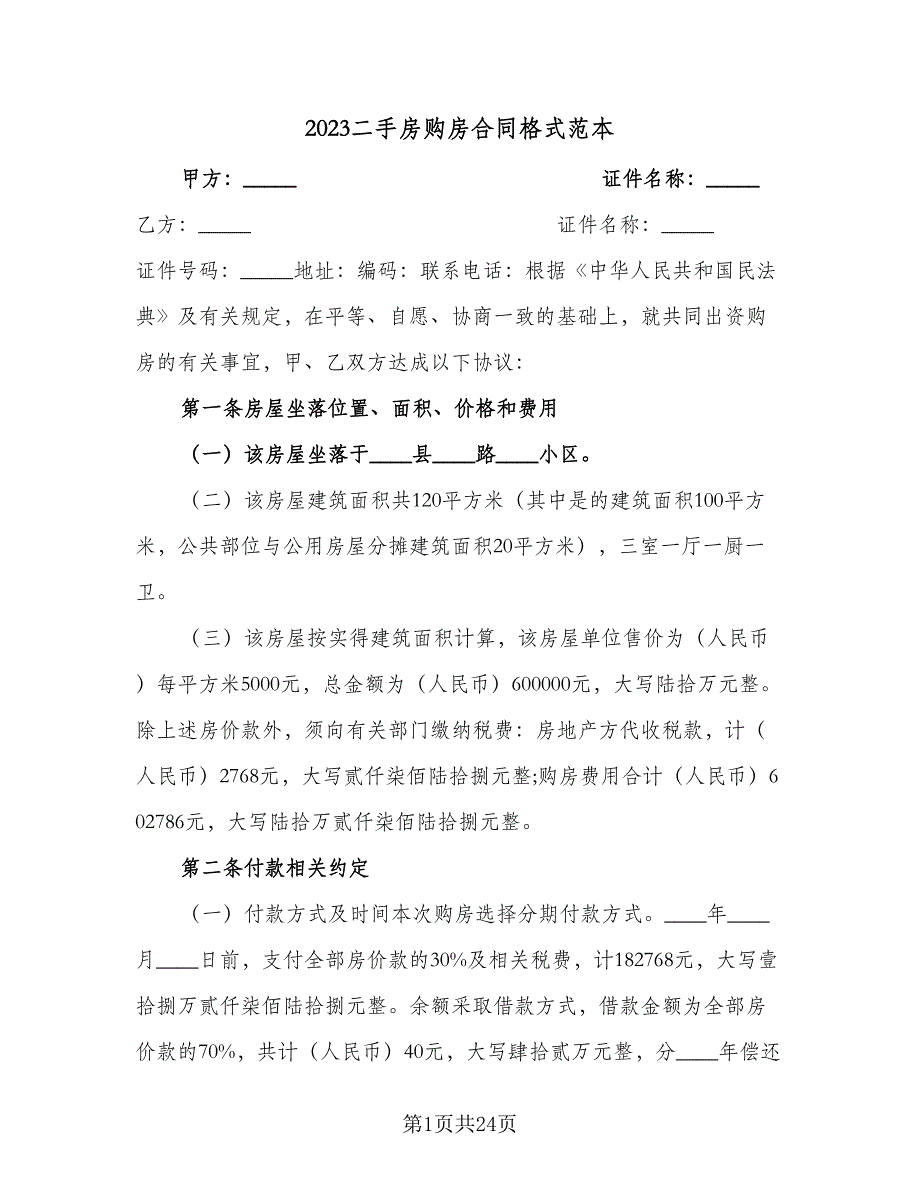 2023二手房购房合同格式范本
甲方：_____ 证件名称：_____
乙方：_____ 证件名称：_____
证件号码：_____地址：编码：联系电话：根据《中华人民共和国民法
典》及有关规定，在平等、自愿、协商一致的基础上，就共同出资购
房的有关事宜，甲、乙双方达成以下协议：
第一条房屋坐落位置、面积、价格和费用
（一）该房屋坐落于____县____路____小区。
（二）该房屋建筑面积共120平方米（其中是的建筑面积100平方
米，公共部位与公用房屋分摊建筑面积20平方米），三室一厅一厨一
卫。
（三）该房屋按实得建筑面积计算，该房屋单位售价为（人民币
）每平方米5000元，总金额为（人民币）600000元，大写陆拾万元整。
除上述房价款外，须向有关部门缴纳税费：房地产方代收税款，计（
人民币）2768元，大写贰仟柒佰陆拾捌元整;购房费用合计（人民币）6
02786元，大写陆拾万贰仟柒佰陆拾捌元整。
第二条付款相关约定
（一）付款方式及时间本次购房选择分期付款方式。____年____
月____日前，支付全部房价款的30%及相关税费，计182768元，大写壹
拾捌万贰仟柒佰陆拾捌元整。余额采取借款方式，借款金额为全部房
价款的70%，共计（人民币）40元，大写肆拾贰万元整，分____年偿还
第1页共24页